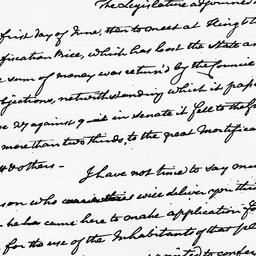 The Legislature adjourned
first day of June, then to meet at Kingsto
fication Price, which has cost the State an
sum of money was return'd by the Councile
bjections, notwithstanding which it pass
e 27 against 9 - it in Senate it fell to the
more than two thirds, to the great Mortifica
& others -
I have not time to say mu
son who will deliver you this
he has came here to make application fo
for the use of the Inhabitants of that pl
to confer